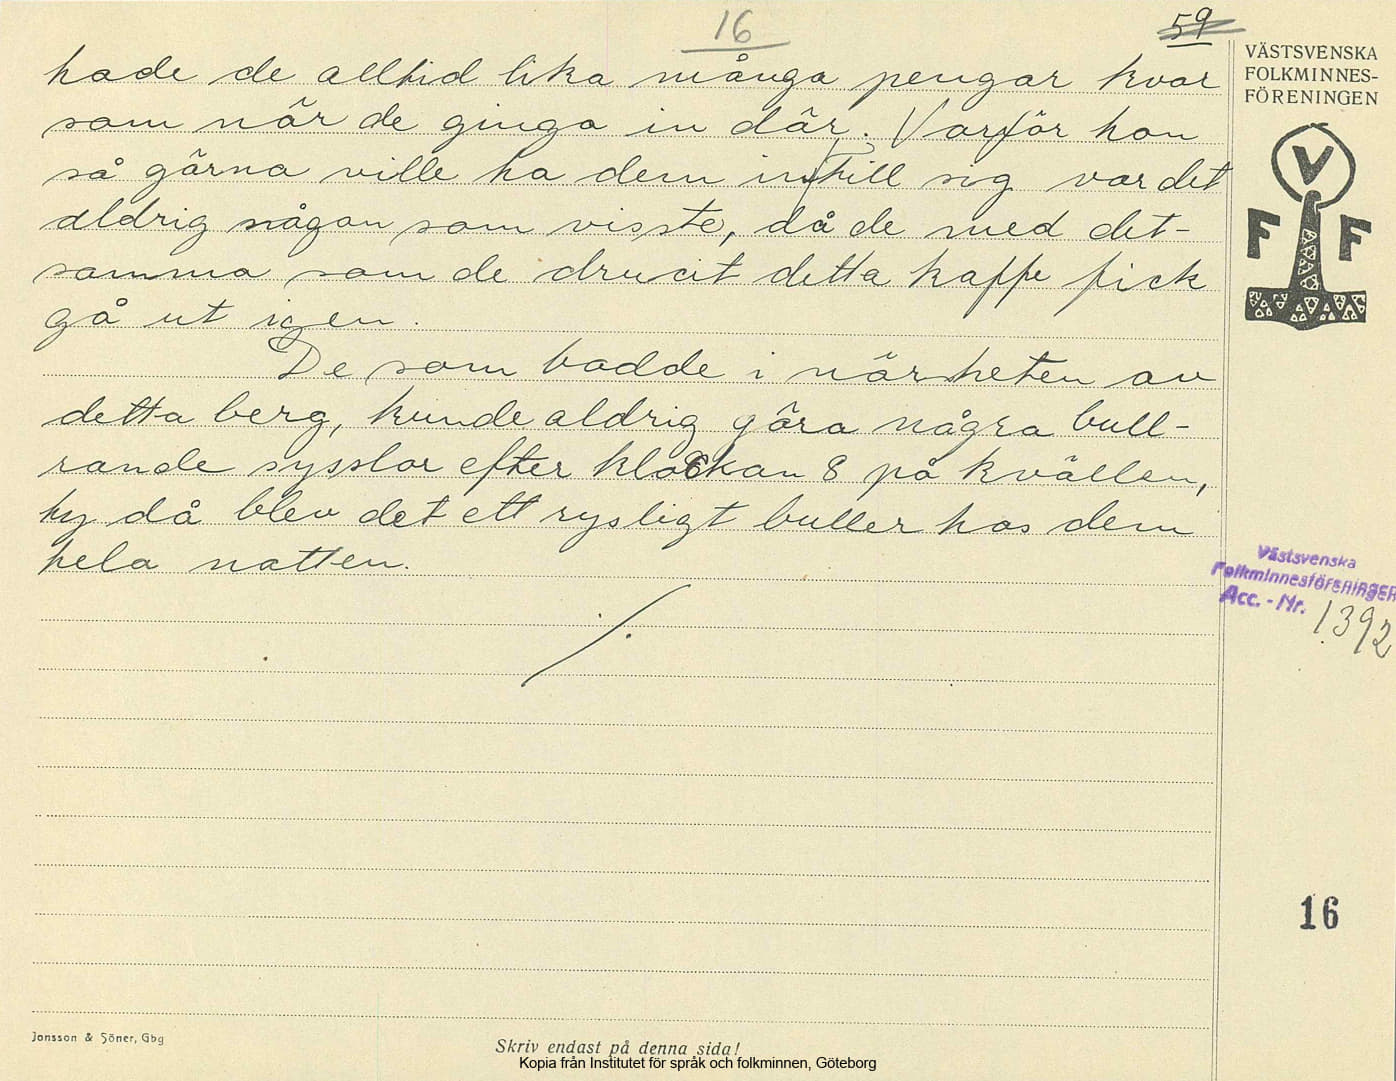 16
59
hade de alltid lika många pengar kvar
som när de gingo in där. Varför han
så gärna ville ha dem in till sig var det
aldrig någon som visste, då de med det-
samma som de drucit detta kaffe fick
gå ut igen.
De som bodde i närheten av
detta berg, kunde aldrig göra några bull-
rande sysslor efter klockan 8 på kvällen,
ty då blev det ett rysligt buller hos dem
hela natten.
VÄSTSVENSKA
FOLKMINNES-
FÖRENINGEN
V
F F
Västsvenska
Folkminnesföreningen
Acc. - Nr. 1392
16
Jonsson & Söner, Gbg
Skriv endast på denna sida!
Kopia från Institutet för språk och folkminnen, Göteborg